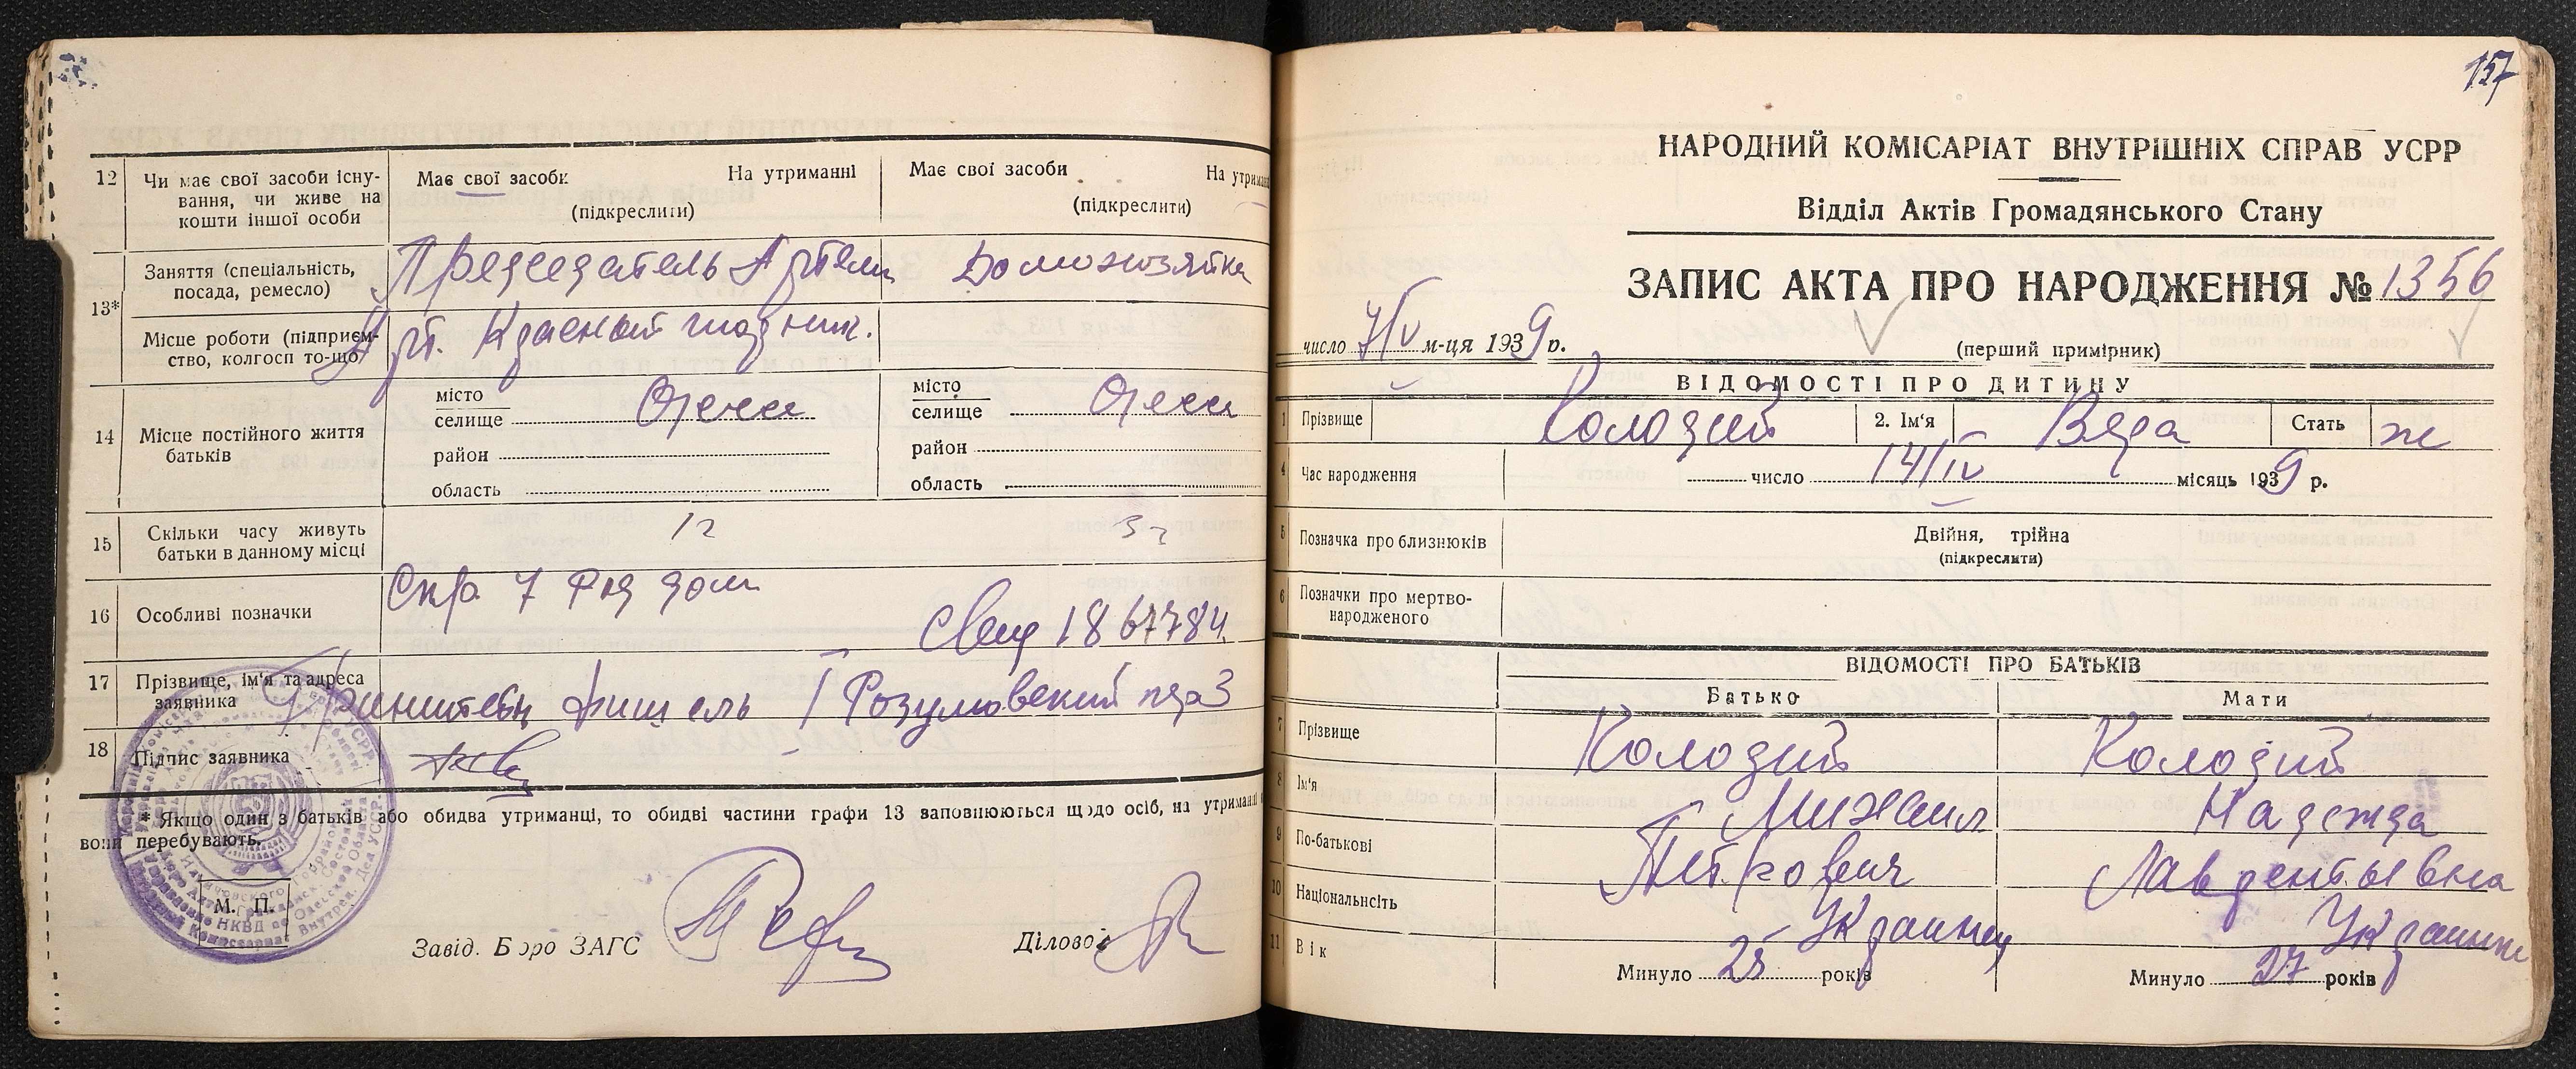 12 Чи має свої засоби існу-
вання, чи живе на
кошти іншої особи
Має свої засоби На утриманні
(підкреслити)
Має свої засоби На утриман
(підкреслити)
13*
Заняття (спеціальність,
посада, ремесло)
Председатель Артели
Домохозяйка
Місце роботи (підприєм-
ство, колгосп то-що)
Арт. Красный
14 Місце постійного життя
батьків
місто
селище Одесса
район
область
місто
селище Одесса
район
область
15 Скільки часу живуть
батьки в данному місці
12
16 Особливі позначки
Спр. 7 Род дом
Свид 1867784
17 Прізвище, ім'я та адреса
заявника
Гринштейн Фишель I Розумовский пер 3
18 Підпис заявника
* Якщо один з батьків або обидва утриманці, то обидві частини графи 13 заповнюються щодо осіб, на утриманні
вони перебувають.
М. П.
Завід. Бюро ЗАГС
Діловод
157
НАРОДНИЙ КОМІСАРІАТ ВНУТРІШНІХ СПРАВ УСРР
Відділ Актів Громадянського Стану
ЗАПИС АКТА ПРО НАРОДЖЕННЯ № 1356
число 7/V м-ця 1939 р.
(перший примірник)
ВІДОМОСТІ ПРО ДИТИНУ
1 Прізвище Колодий 2. Ім'я Вера Стать ж
4 Час народження число 14/IV місяць 1939 р.
5 Позначка про близнюків
Двійня, трійна
(підкреслити)
6 Позначки про мертво-
народженого
ВІДОМОСТІ ПРО БАТЬКІВ
Батько Мати
7 Прізвище Колодий Колодий
8 Ім'я Михаил Надежда
9 По-батькові Петрович Лаврентьевна
10 Національність Украинец Украинка
11 Вік Минуло 25 років Минуло 27 років